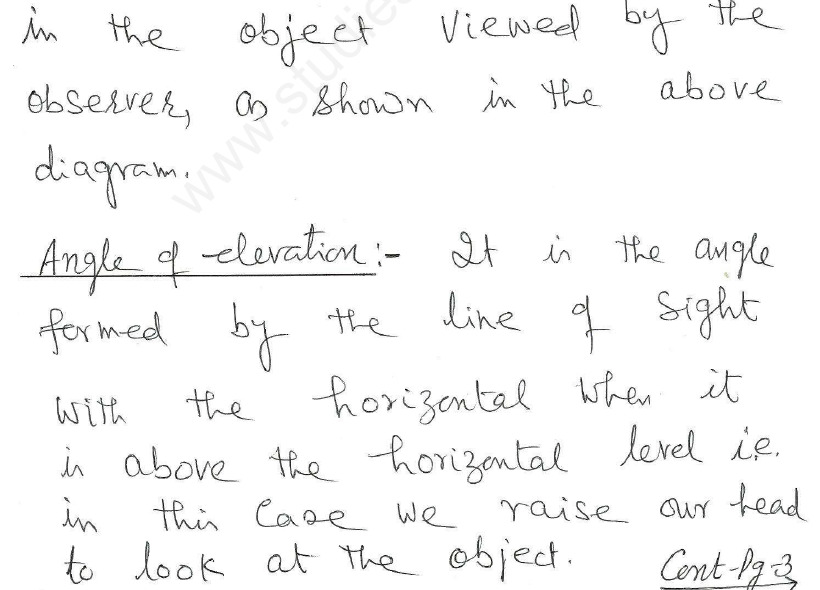 in the object viewed by the
observer, as shown in the above
diagram.
Angle of elevation:- It is the angle
formed by the line of sight
with the horizontal when it
is above the horizontal level i.e.
in this case we raise our head
to look at the object. Cont-Pg-3
www.studies